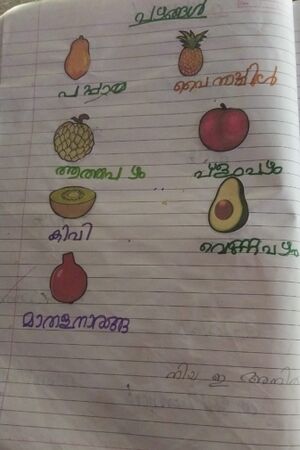 പഴങ്ങൾ
പപ്പായ
പൈനാപ്പിൾ
ആത്തപഴം
പ്ളംപഴം
കിവി
വെണ്ണപഴം
മാതളനാരങ്ങ
നിയ ഇ